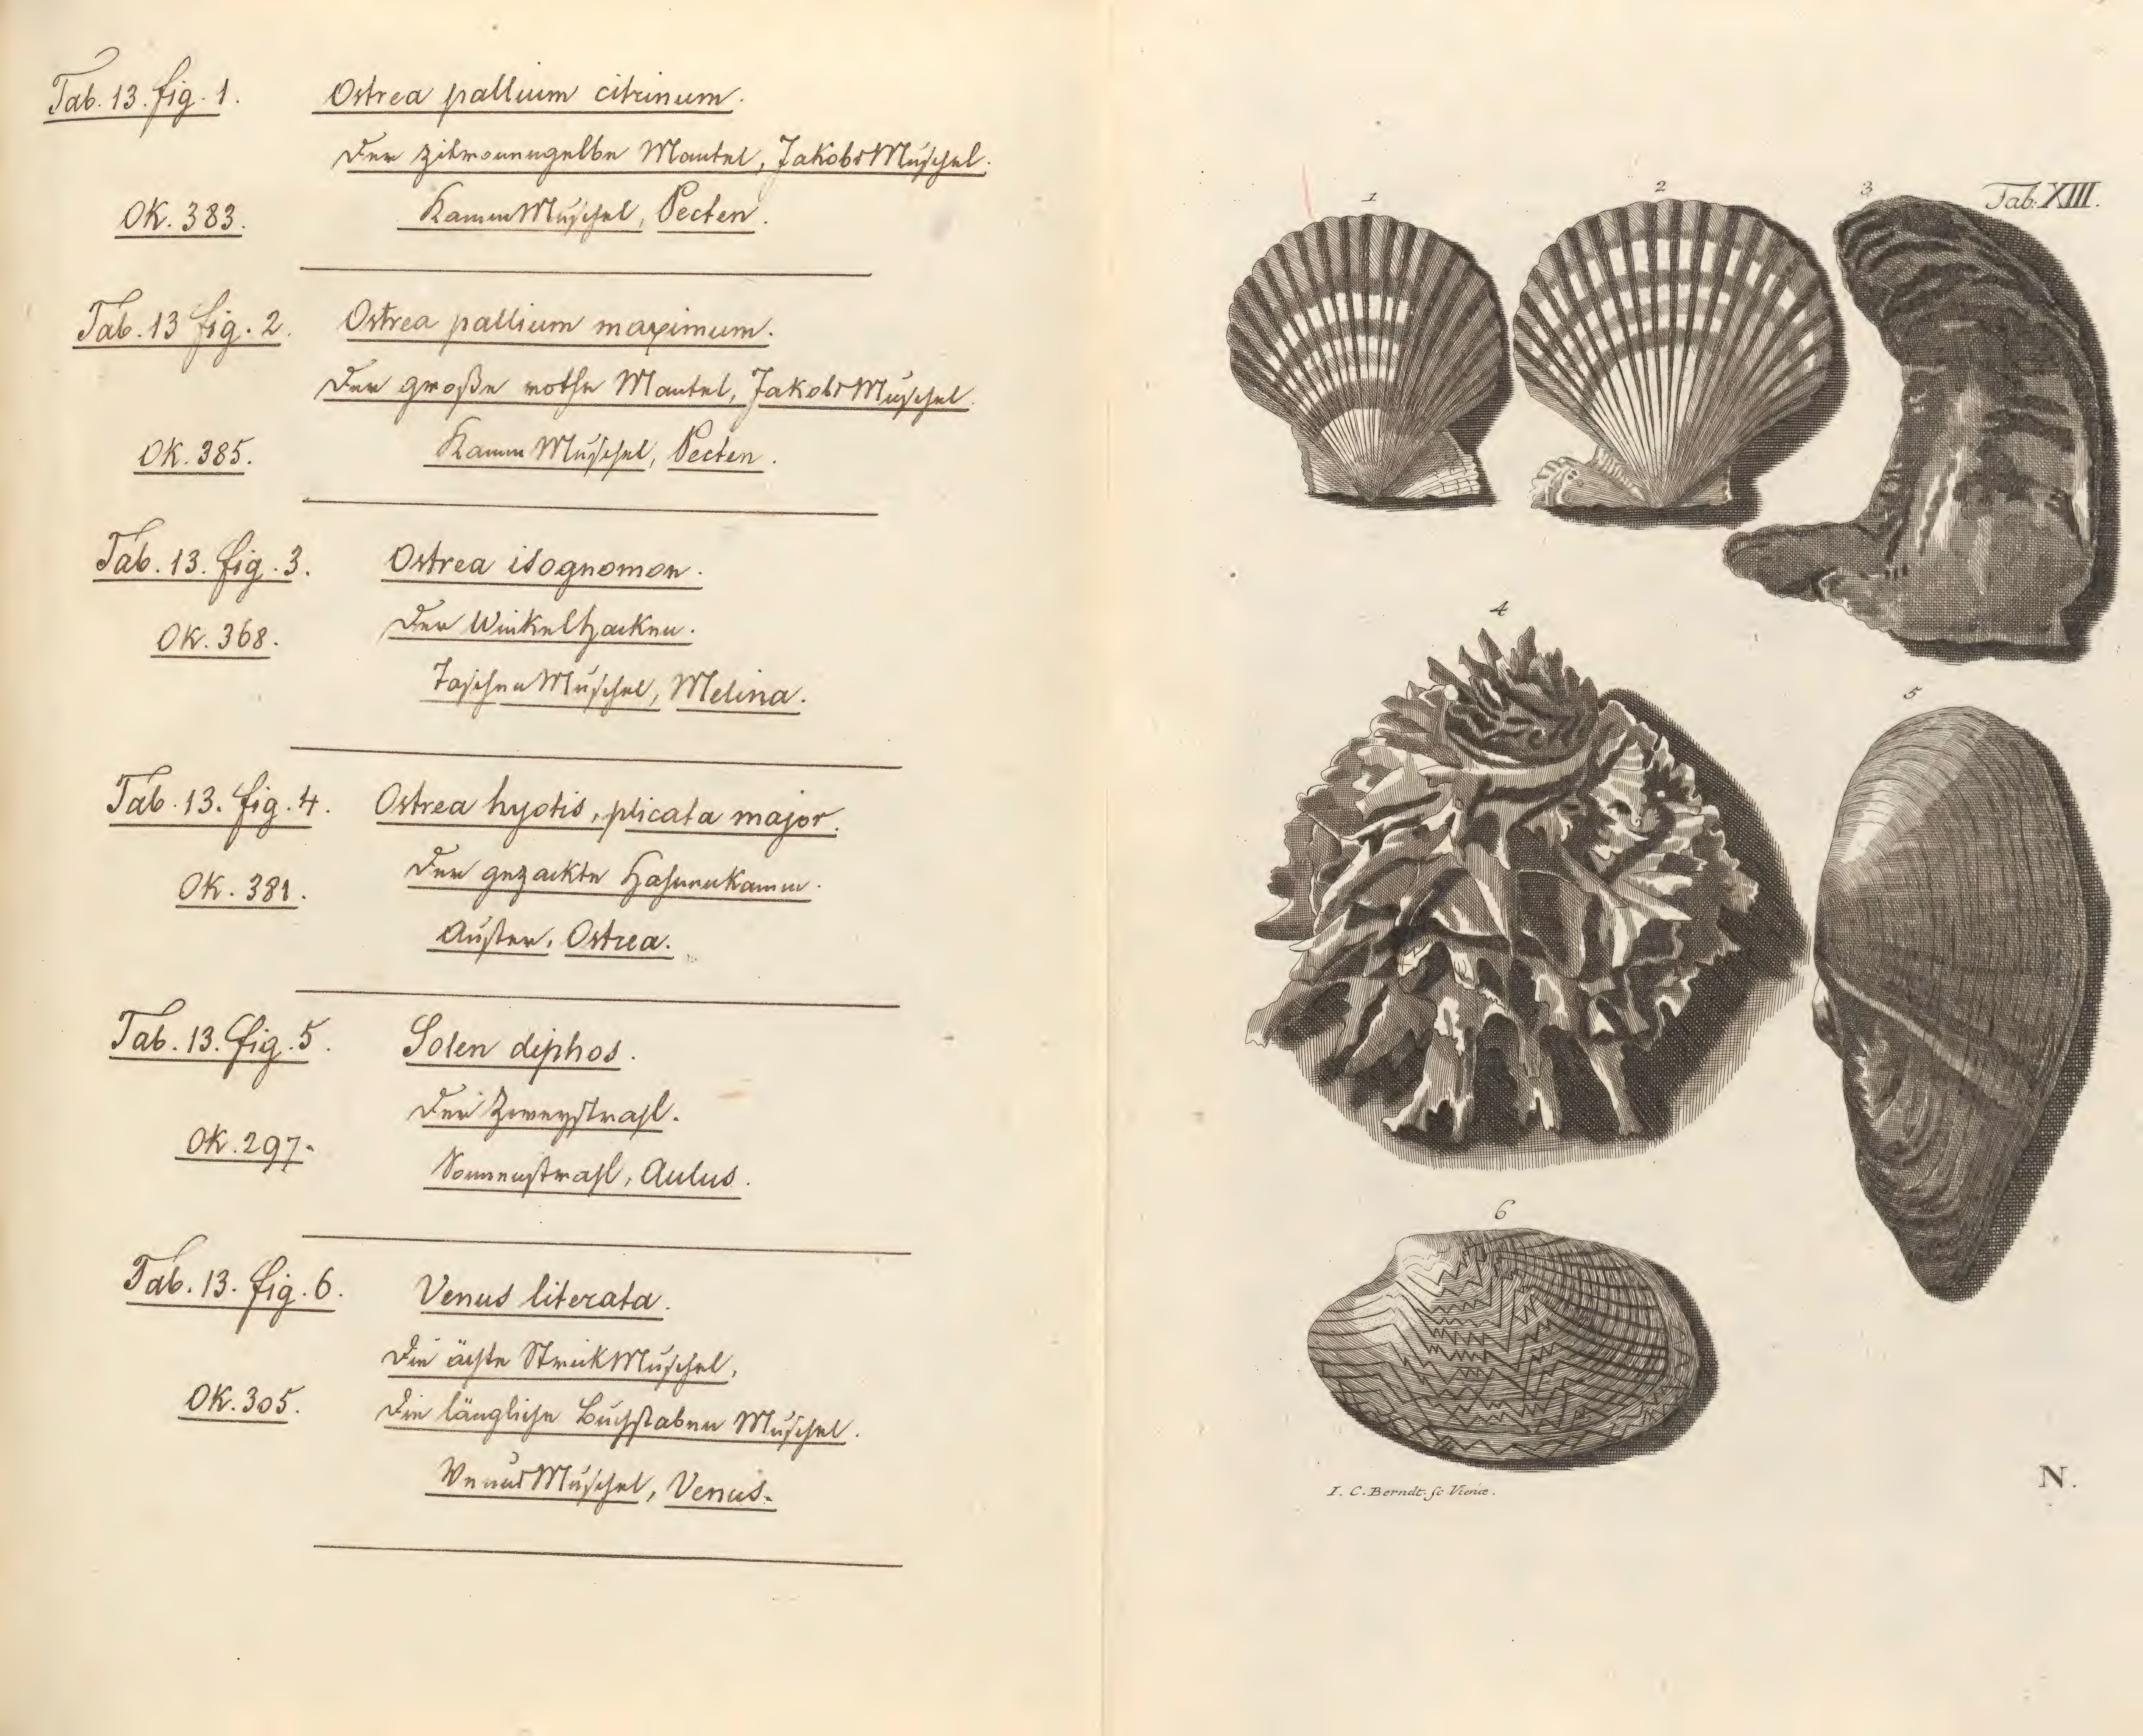 Tab. 13. fig. 1.
Ostrea pallium citrinum.
Der zitronengelbe Mantel, JakobsMuschel.
OK. 383.
KammMuschel, Pecten.
Tab. 13 fig. 2.
Ostrea pallium maximum.
Der große rothe Mantel, JakobsMuschel.
OK. 385.
KammMuschel, Pecten.
Tab. 13. fig. 3.
Ostrea isognomon.
Der Winkelhacken.
OK. 368.
TaschenMuschel, Melina.
Tab. 13. fig. 4.
Ostrea hyotis, plicata major.
Der gezackte Hahnenkamm.
OK. 381.
Auster, Ostrea.
Tab. 13. fig. 5.
Solen diphos.
Der Zweystrahl.
OK. 297.
Sonnenstrahl, Aulus.
Tab. 13. fig. 6.
Venus literata.
Die ächte StrickMuschel,
OK. 305.
Die längliche Buchstaben Muschel.
VenusMuschel, Venus.
Tab. XIII.
1
2
3
4
5
6
I. C. Berndt. sc. Vienæ.
N.